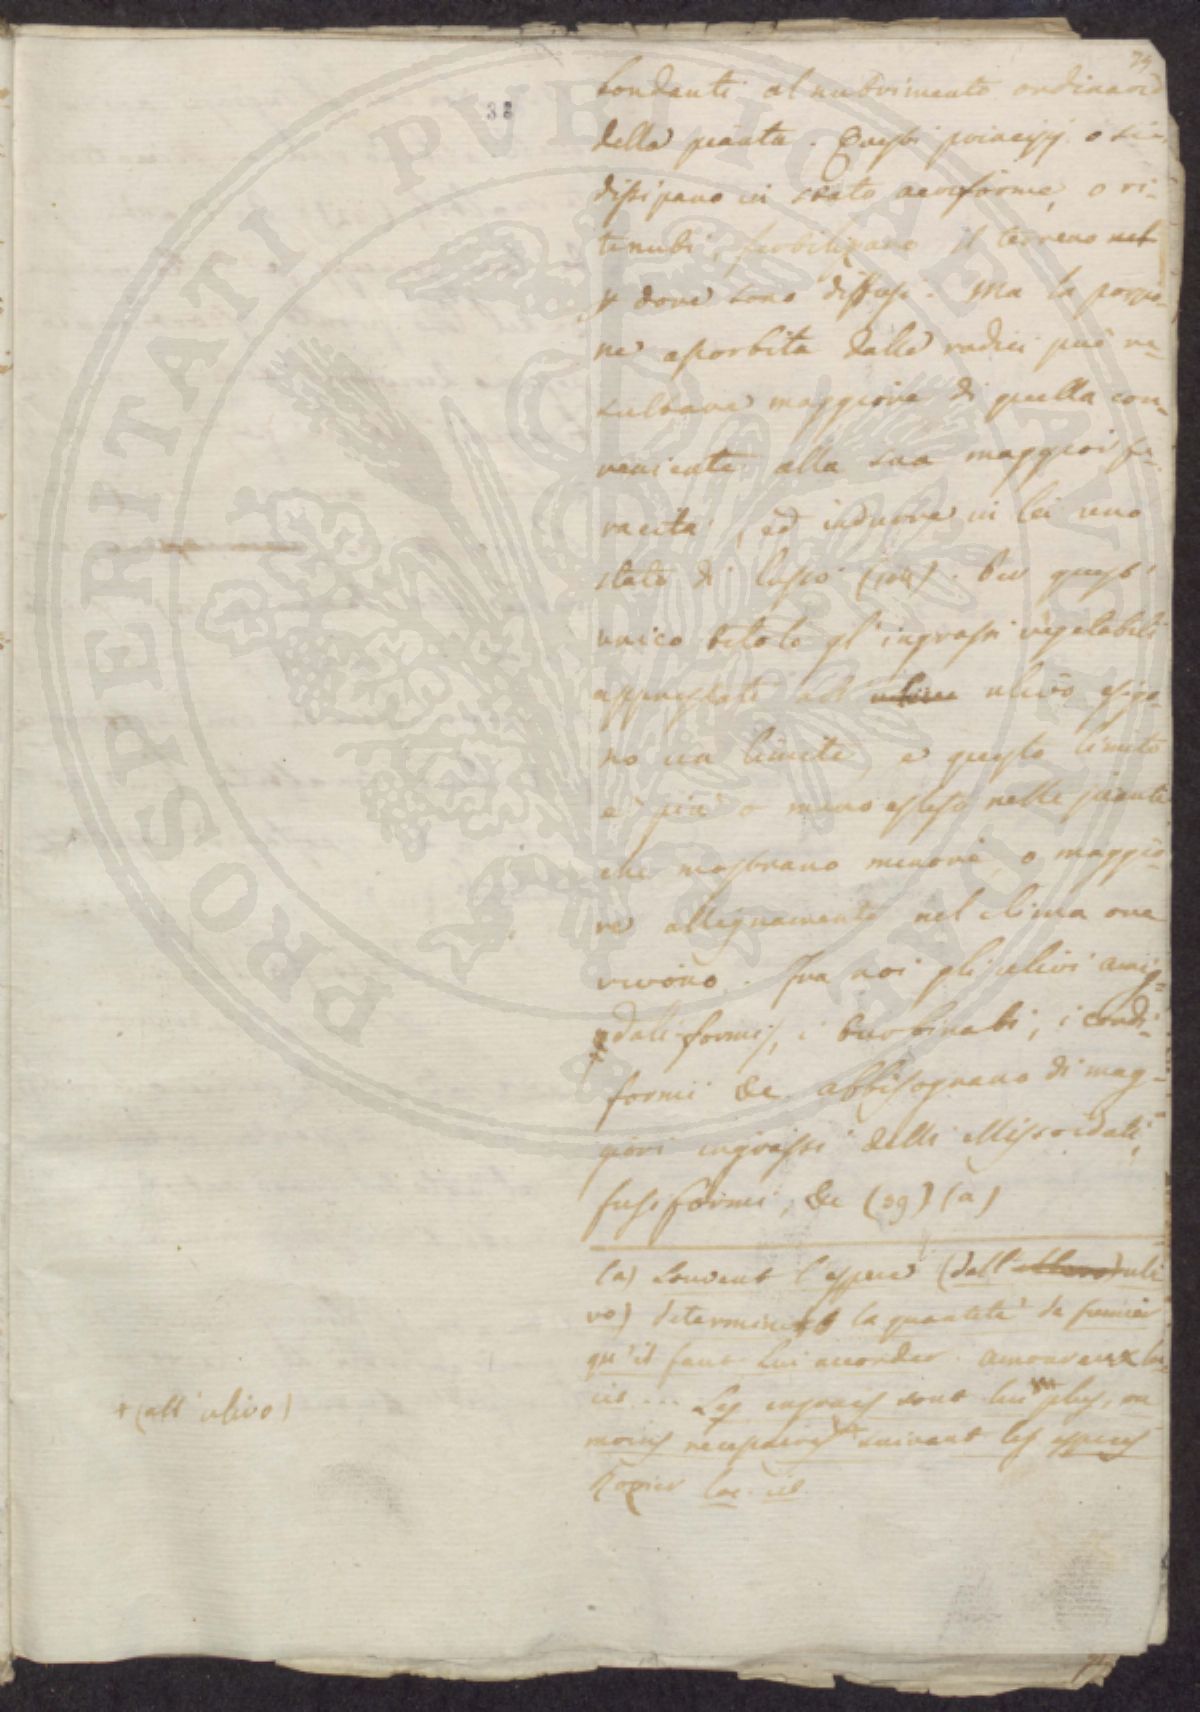 75
38
bondanti al nutrimento ordinario
della pianta. Questi principj o si
dissipano in stato aeriforme, o ri-
tenuti, fertilizzano il terreno nel
dove sono diffusi. Ma la porzio-
ne assorbita dalle radici può re-
sultare maggiore di quella con-
veniente alla sua maggior fe-
racità, ed indurre in lei uno
stato di lusso (104). Per quest'
unico titolo gl'ingrassi vegetabili
apprestati all' ulivo esigo-
no un limite, e questo limite
è più o meno esteso nelle piante
che mostrano minore, o maggio-
re allignamento nel clima ove
vivono. Fra noi gli ulivi amig-
daliformi, i turbinati, i cordi-
formi &c abbisognano di mag-
giori ingrassi delli ellissoidali,
fusiformi, &c (39) (a)
(a) Souvent l'espece (dell' uli
vo) determine la quantité de fumier
qu'il faut lui accorder. Amoureux loc.
cit.... Les engrais sont lui plus, ou
moins necessaires + suivant les especes
Rozier loc. cit.
+ (all' ulivo)
PROSPERITATI PVBLICAE AVGENDAE